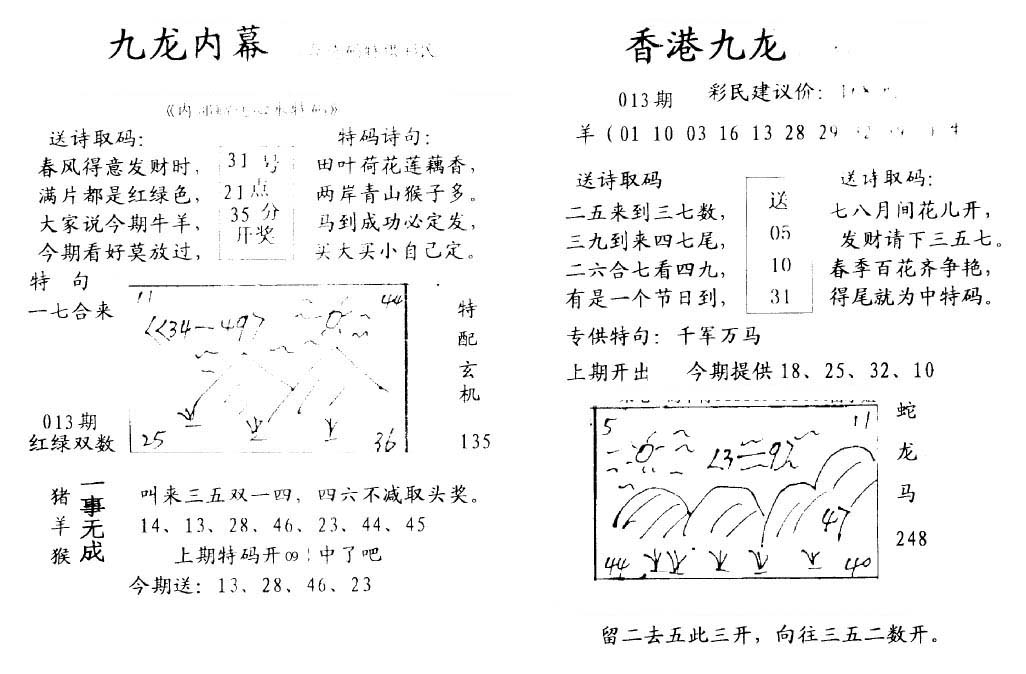 九龙内幕
送诗取码:
春风得意发财时,
满片都是红绿色,
大家说今期牛羊,
今期看好莫放过,
31 号
21点
35 分
开奖
特码诗句:
田叶荷花莲藕香,
两岸青山猴子多。
马到成功必定发,
买大买小自己定。
特 句
一七合来
013期
红绿双数
11
44
25
36
特
配
玄
机
135
猪
羊
猴
一事无成
叫来三五双一四, 四六不减取头奖。
14、13、28、46、23、44、45
上期特码开09!中了吧
今期送: 13、28、46、23
香港九龙
013期
彩民建议价:
羊 (01 10 03 16 13 28 29
送诗取码
二五来到三七数,
三九到来四七尾,
二六合七看四九,
有是一个节日到,
送
05
10
31
送诗取码:
七八月间花儿开,
发财请下三五七。
春季百花齐争艳,
得尾就为中特码。
专供特句: 千军万马
上期开出 今期提供18、25、32、10
5
11
47
44
40
蛇
龙
马
248
留二去五此三开, 向往三五二数开。